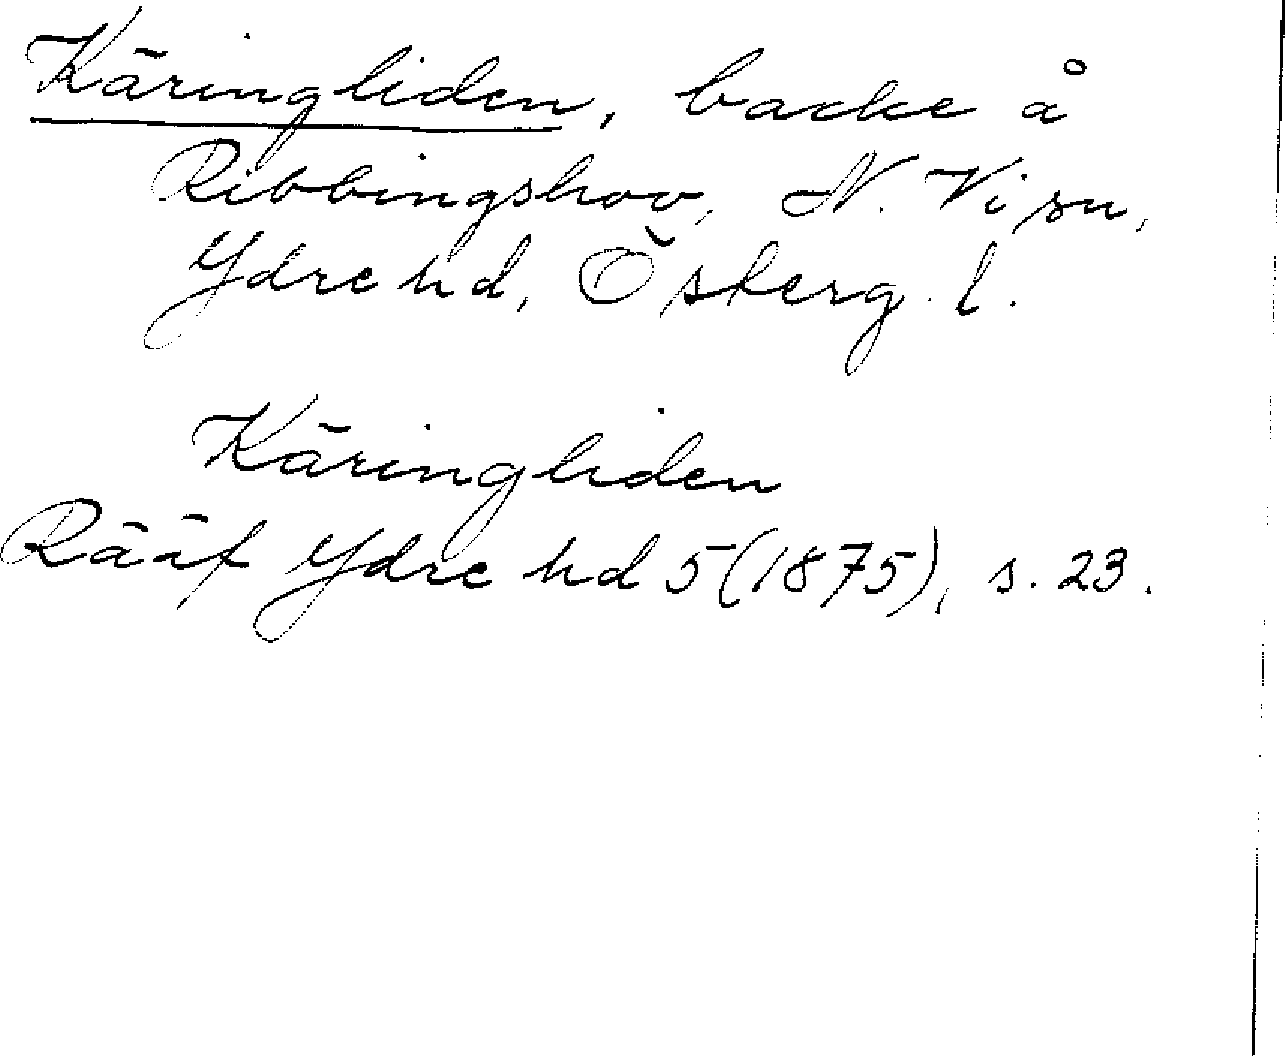 Käringliden, backe å
Ribbingshov, N. Vi sn,
Ydre hd, Österg. l.
Käringliden
Rääf Ydre hd 5 (1875), s. 23.